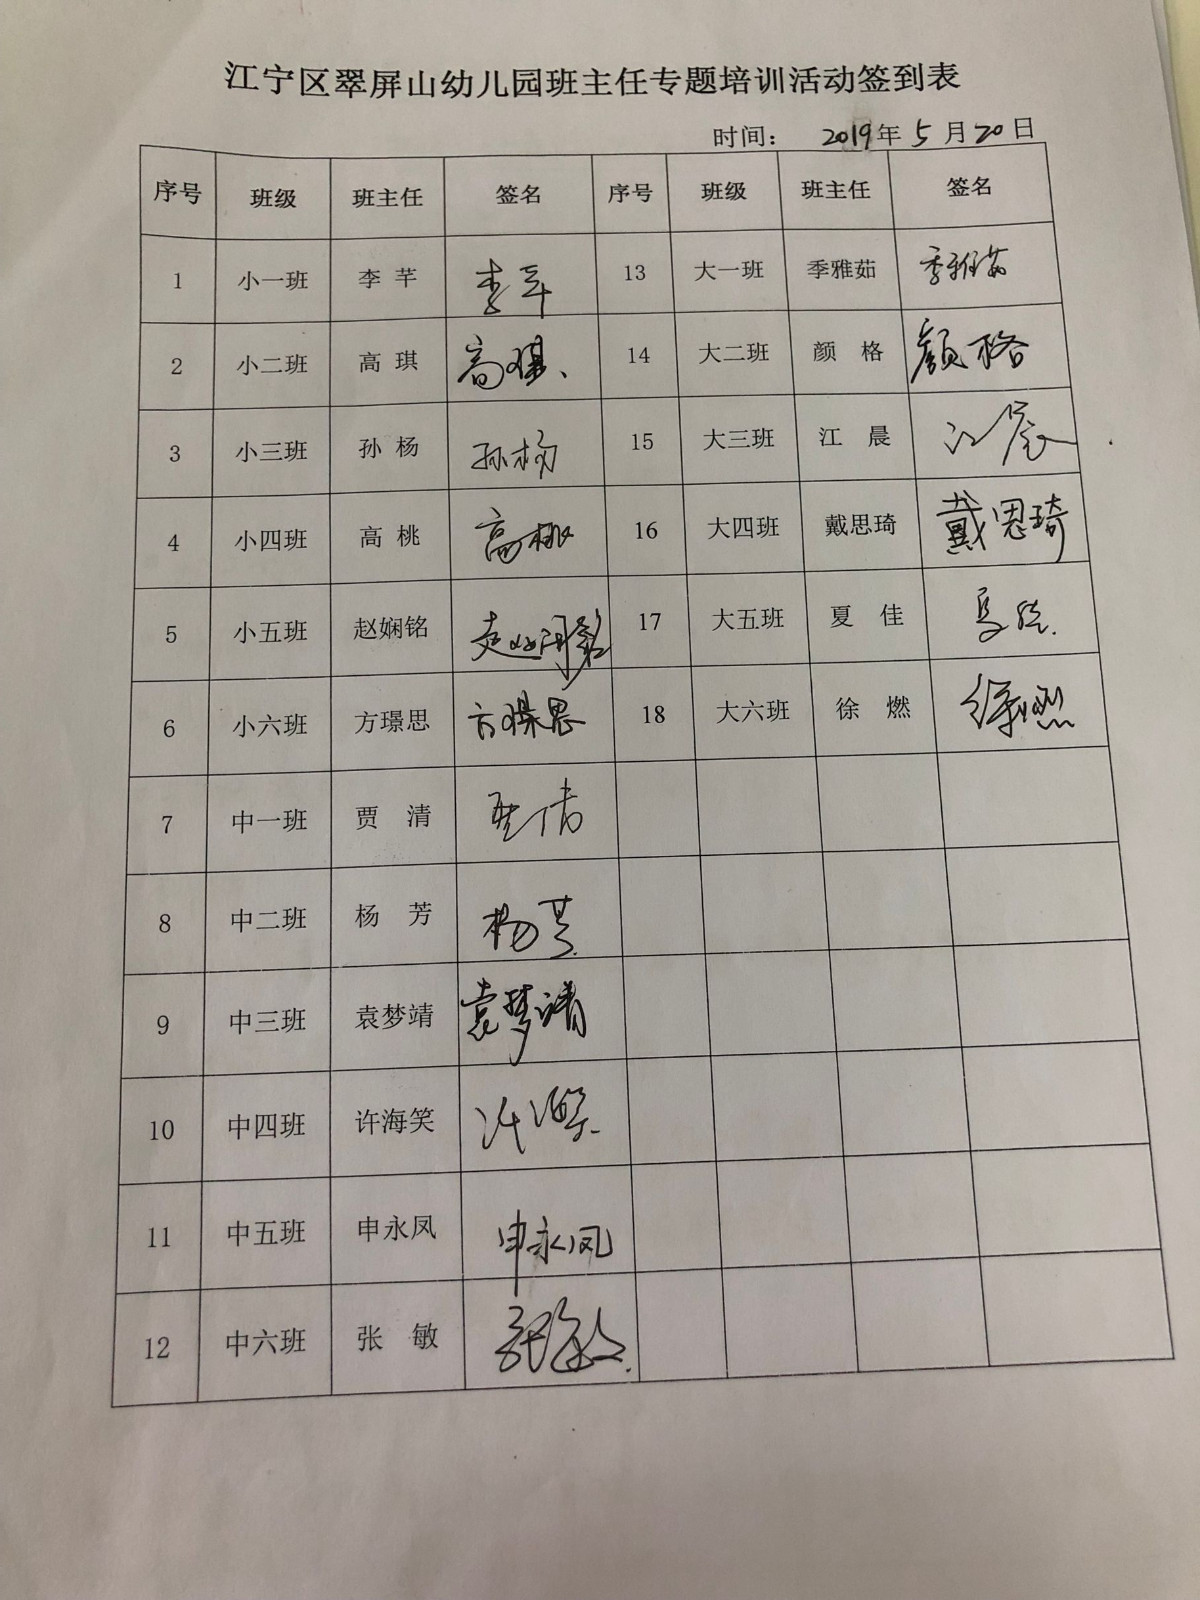 江宁区翠屏山幼儿园班主任专题培训活动签到表
时间： 2019年 5 月 20 日
序号 班级 班主任 签名 序号 班级 班主任 签名
1 小一班 李 芊 李芊 13 大一班 季雅茹 季雅茹
2 小二班 高 琪 高琪、 14 大二班 颜 格 颜格
3 小三班 孙 杨 孙杨 15 大三班 江 晨 江晨
4 小四班 高 桃 高桃 16 大四班 戴思琦 戴思琦
5 小五班 赵娴铭 赵娴铭 17 大五班 夏 佳 夏佳.
6 小六班 方璟思 方璟思 18 大六班 徐 燃 徐燃
7 中一班 贾 清 贾清
8 中二班 杨 芳 杨芳
9 中三班 袁梦靖 袁梦靖
10 中四班 许海笑 许海笑
11 中五班 申永凤 申永凤
12 中六班 张 敏 张敏.